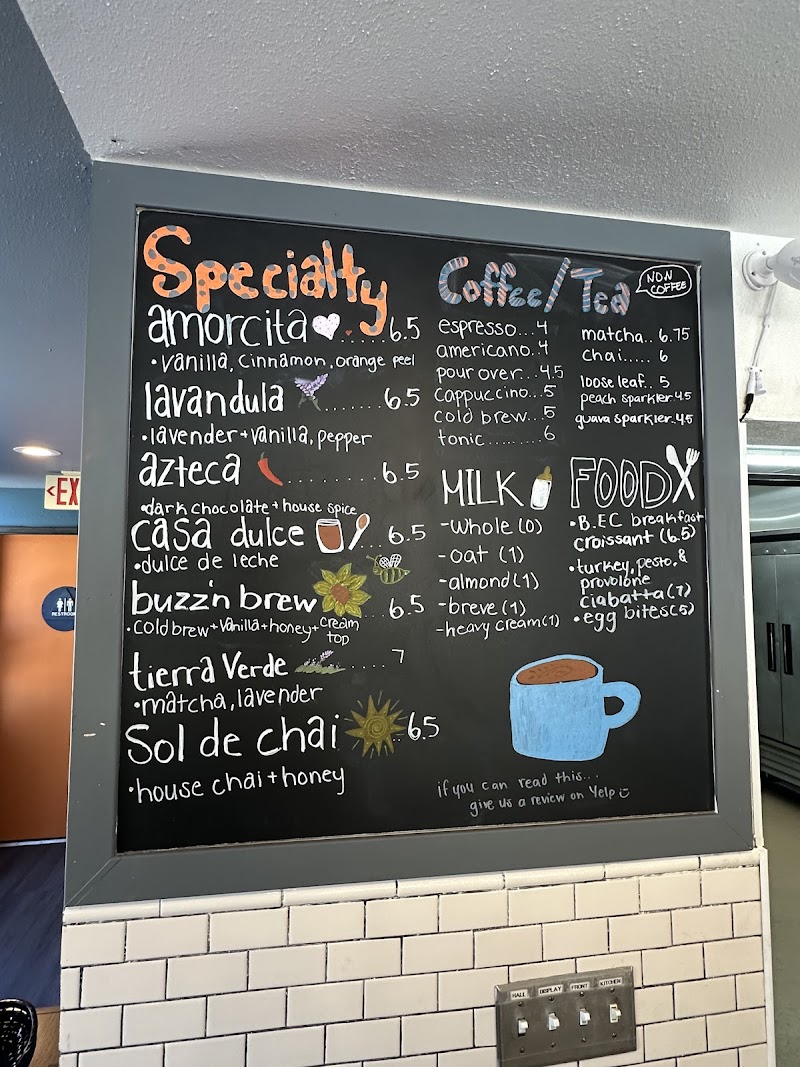 Specialty
amorcita.....6.5
•vanilla, cinnamon, orange peel
lavandula........6.5
•lavender+vanilla, pepper
azteca..........6.5
•dark chocolate+house spice
casa dulce...6.5
•dulce de leche
buzz'n brew..6.5
•cold brew+vanilla+honey+cream
top
tierra Verde.....7
•matcha, lavender
Sol de chai..6.5
•house chai+honey
Coffee/Tea
NON
COFFEE
espresso...4
americano..4
pour over...4.5
cappuccino...5
cold brew...5
tonic..........6
matcha..6.75
chai.....6
loose leaf..5
peach sparkler.4.5
guava sparkler.4.5
MILK
-whole (0)
-oat (1)
-almond (1)
-breve (1)
-heavy cream (1)
FOOD
•B.EC breakfast
croissant (6.5)
•turkey, pesto, &
provolone
ciabatta (7)
•egg bites (5)
if you can read this...
give us a review on Yelp
<EX
RESTROOM
HALL
DISPLAY
FRONT
KITCHEN